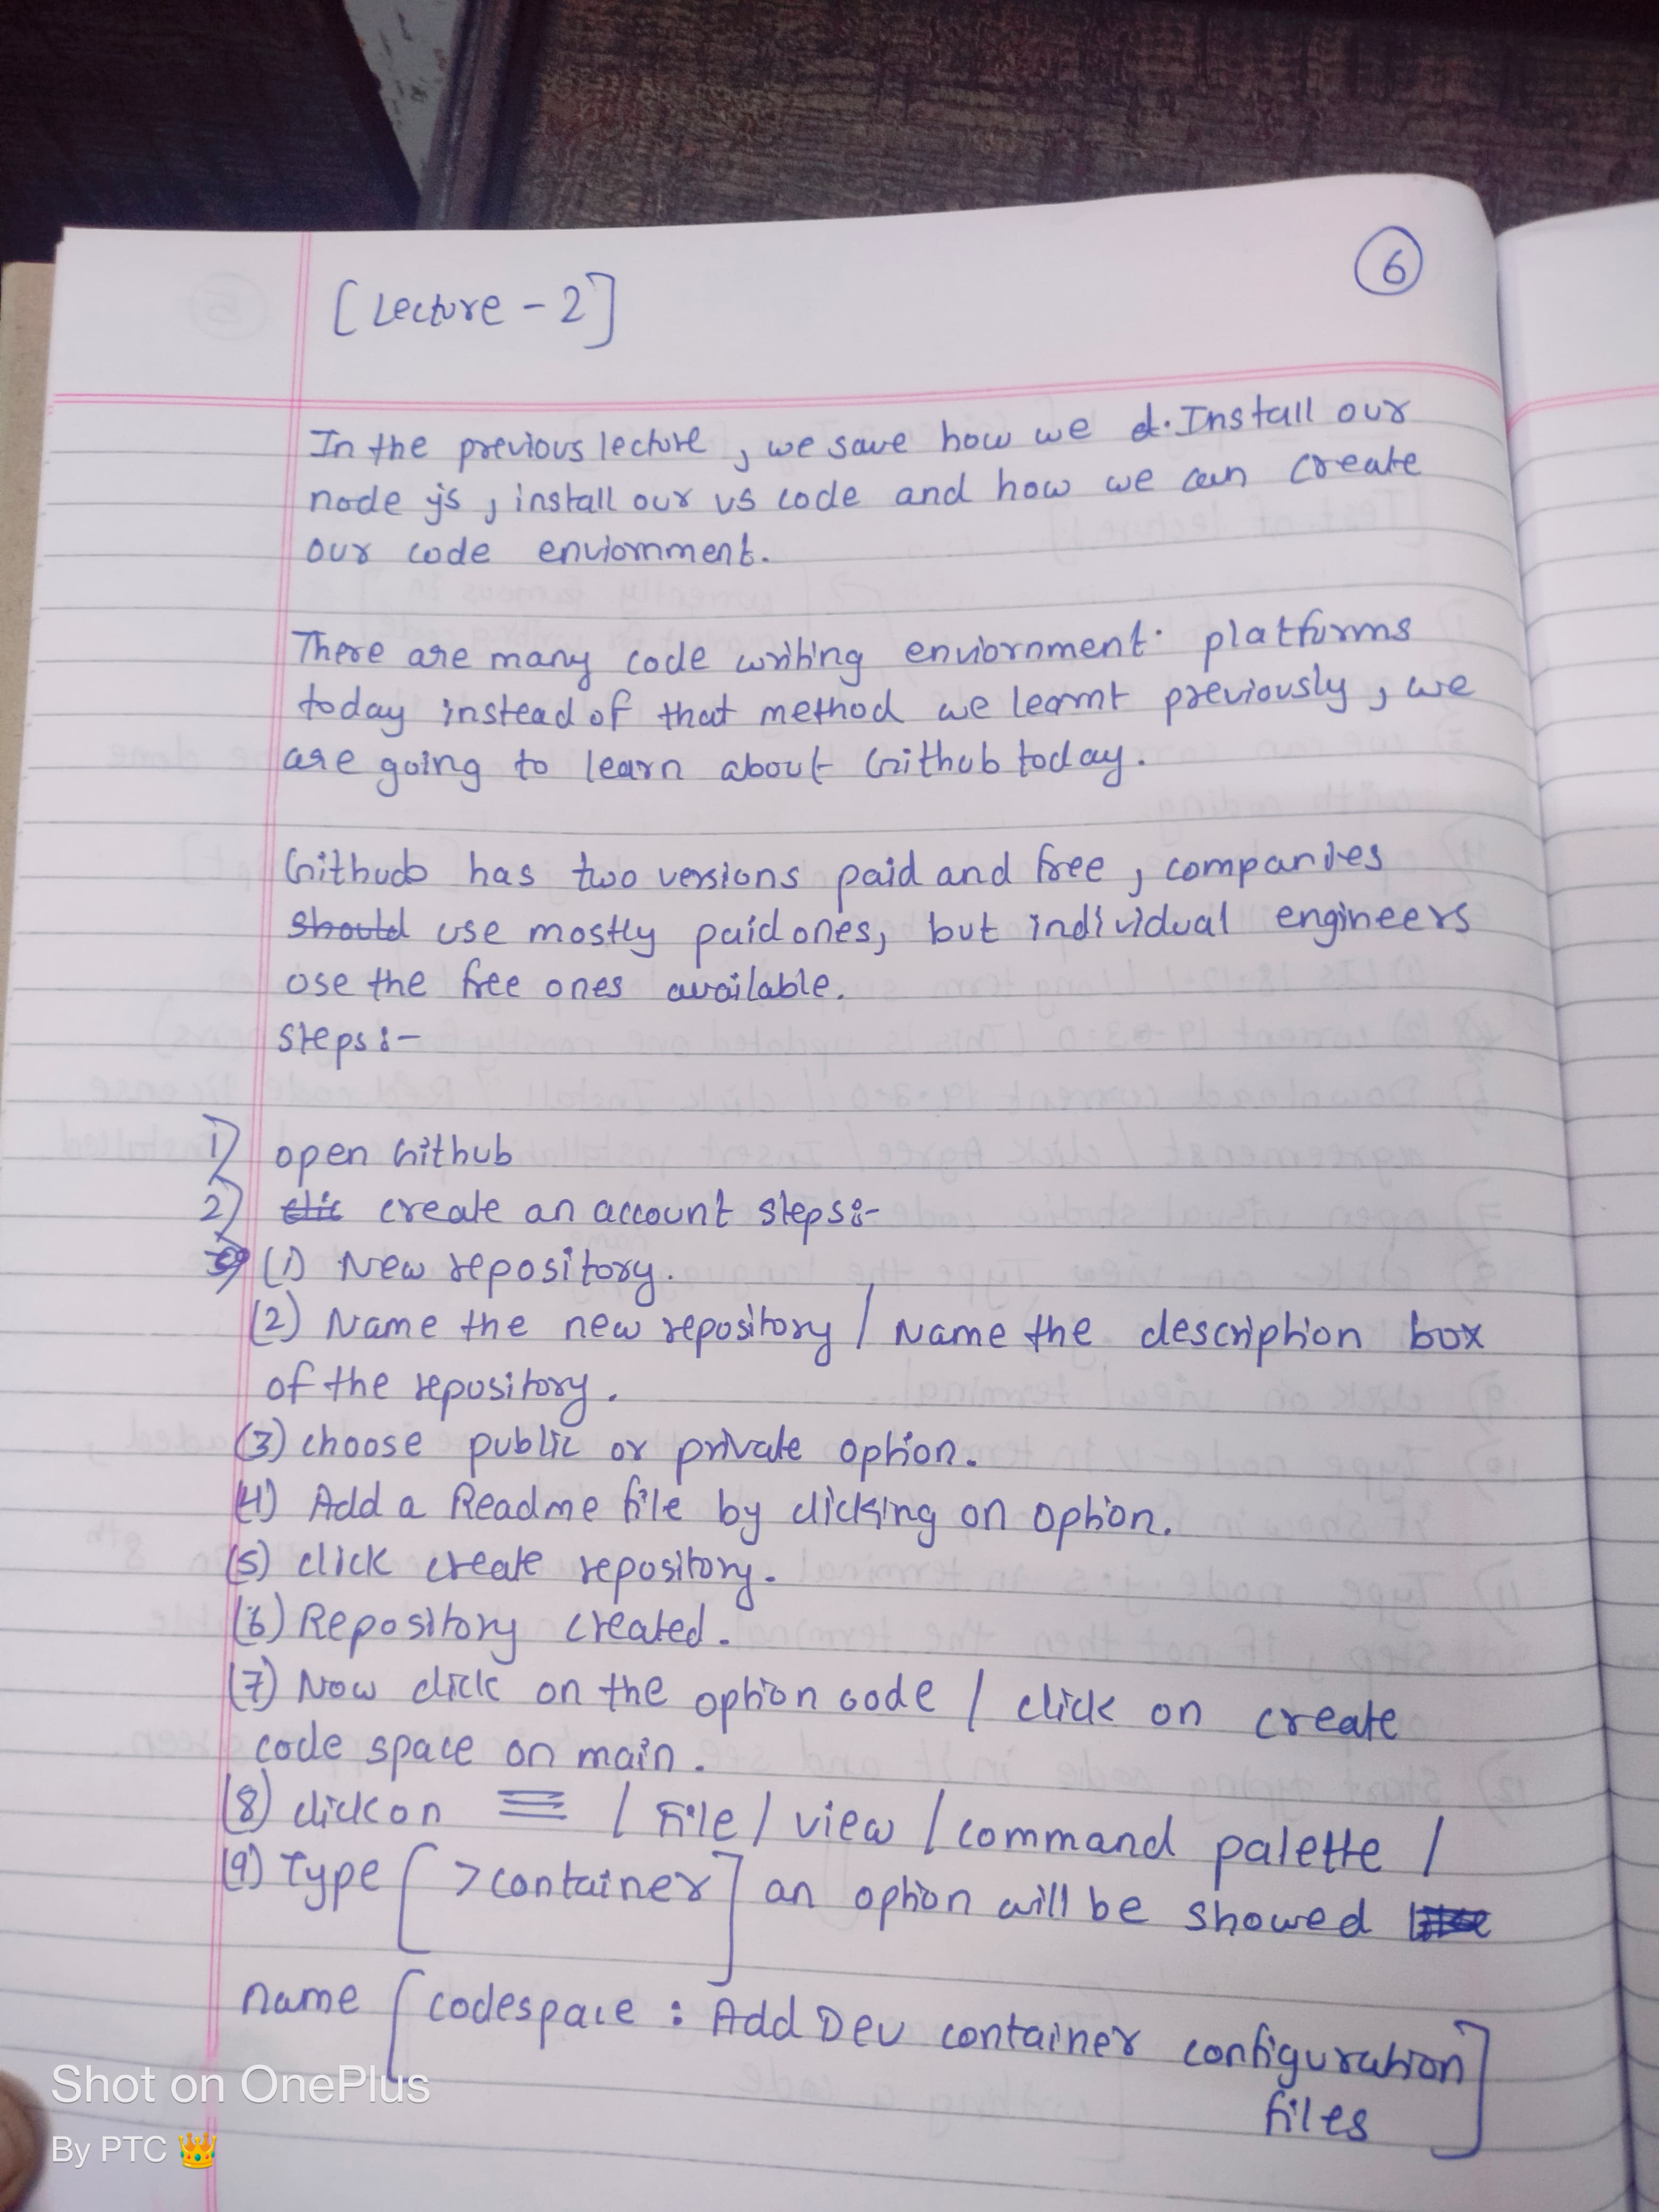 [Lecture - 2]
6
In the previous lecture, we save how we d. Install our
node js, install our vs code and how we can create
our code enviornment.
There are many code writing enviornment. platforms
today instead of that method we learnt previously, we
are going to learn about Github today.
Github has two versions paid and free, companies
should use mostly paid ones, but individual engineers
use the free ones available.
steps:-
1) open Github
2) clic create an account steps:-
(1) New repository.
(2) Name the new repository / Name the description box
of the repository.
(3) choose public or private option.
(4) Add a Readme file by clicking on option.
(5) click create repository.
(6) Repository created.
(7) Now click on the option code / click on create
code space on main.
(8) click on ≡ / File / view / command palette /
(9) Type [ >container ] an option will be showed
name [ codespace : Add Dev container configuration
files ]
Shot on OnePlus
By PTC 👑